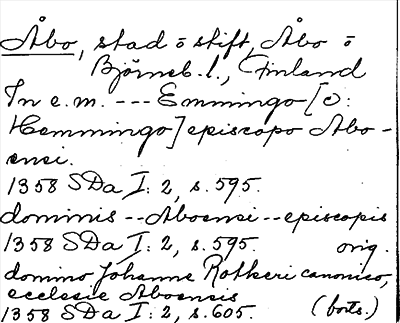 Åbo, stad o stift, Åbo o
Björneb. l., Finland
In e.m. --- Emmingo [ɔ:
Hemmingo] episcopo Abo-
ensi.
1358 SDa I: 2, s. 595.
dominis -- Aboensi -- episcopis
1358 SDa I: 2, s. 595. orig.
domino Johanne Rotkeri canonico,
ecclesie Aboensis
1358 SDa I: 2, s. 605. (forts.)